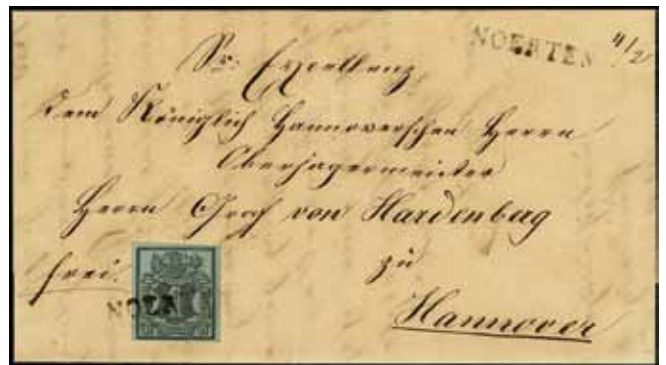 NOERTEN 4/2
Sr: Excellenz
dem Königlich Hannoverschen Herrn
Oberjägermeister
Herrn Graf von Hardenberg
frei. zu
Hannover